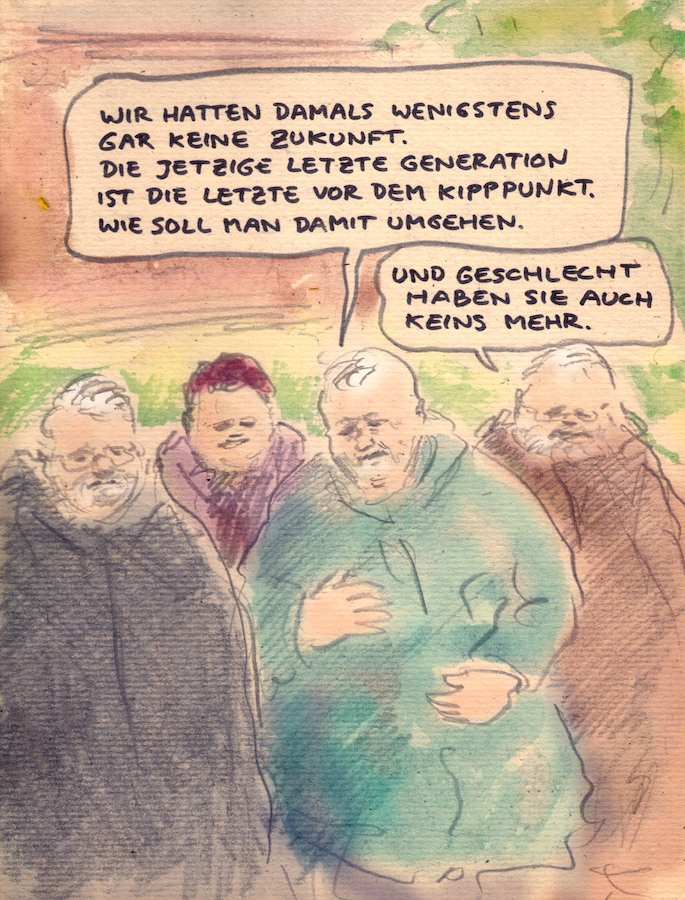 WIR HATTEN DAMALS WENIGSTENS
GAR KEINE ZUKUNFT.
DIE JETZIGE LETZTE GENERATION
IST DIE LETZTE VOR DEM KIPPPUNKT.
WIE SOLL MAN DAMIT UMGEHEN.
UND GESCHLECHT
HABEN SIE AUCH
KEINS MEHR.